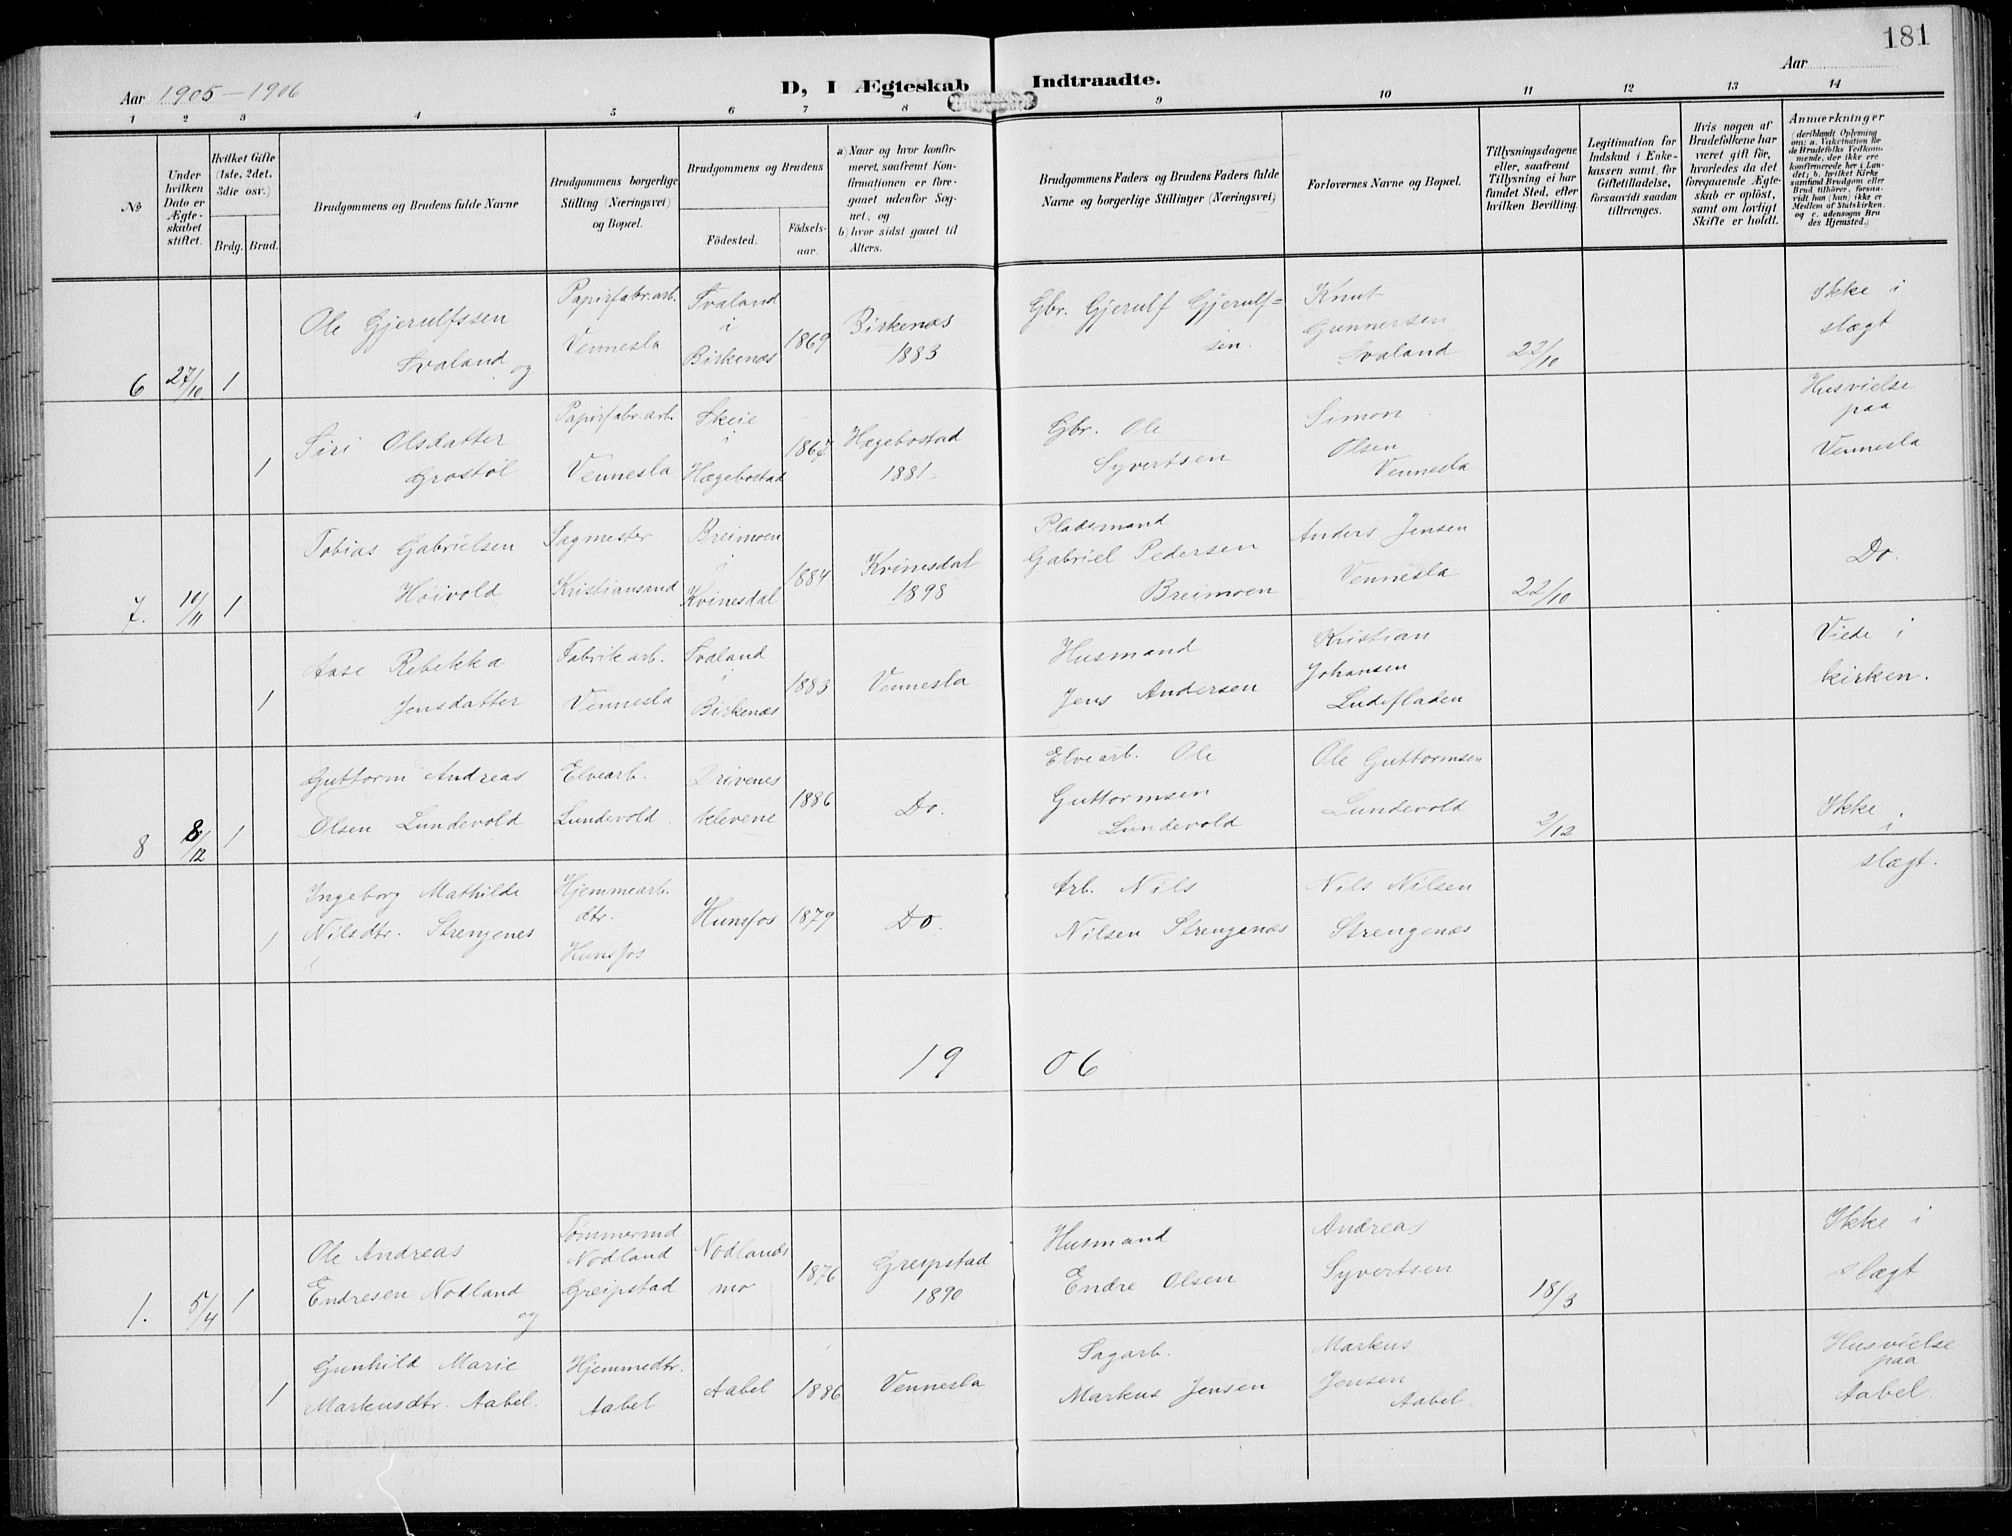 181
Aar 1905-1906
D, I Ægteskab Indtraadte.
Aar
1 2 3 4 5 6 7 8 9 10 11 12 13 14
№
Under hvilken Dato er Ægteskabet stiftet.
Hvilket Gifte (1ste, 2det, 3die osv.)
Brdg. Brud.
Brudgommens og Brudens fulde Navne
Brudgommens borgerlige Stilling (Næringsvei) og Bopæl.
Brudgommens og Brudens
Födested.
Födsels-aar.
a) Naar og hvor konfirmeret, saafremt Konfirmationen er foregaaet udenfor Sognet, og
b) hvor sidst gaaet til Alters.
Brudgommens Faders og Brudens Faders fulde Navne og borgerlige Stillinger (Næringsvei)
Forlovernes Navne og Bopæl.
Tillysningsdagene eller, saafremt Tillysning ei har fundet Sted, efter hvilken Bevilling.
Legitimation for Indskud i Enkekassen samt for Giftetilladelse, forsaavidt saadan tiltrænges.
Hvis nogen af Brudefolkene har været gift för, hvorledes da det foregaaende Ægteskab er oplöst, samt om lovligt Skifte er holdt.
Anmærkninger
(deriblandt Oplysning om: a. Vakcination for de Brudefolks Vedkommende, der ikke ere konfirmerede her i Landet; b. hvilket Kirkesamfund Brudgom eller Brud tilhörer, forsaavidt han (hun) ikke er Medlem af Statskirken, og c. udensogns Brudes Hjemsted.)
6 27/10 1
Ole Gjerulfssen
Svaland og
Papirfabr.arb.
Vennesla
Svaland
i
Birkenæs
1869
Birkenæs
1883
Gbr. Gjerulf Gjerulf=
sen.
Knut
Gunnersen
Svaland
22/10
Ikke i
slægt
1
Siri Olsdatter
Grostöl
Papirfabr.arb.
Vennesla
Skeie
i
Hægebostad
Hægebostad
1881
Gbr. Ole
Syvertsen
Simon
Olsen
Vennesla
Husvielse
paa
Vennesla
7. 10/11 1
Tobias Gabrielsen
Höivold
Sagmester
Kristiansand
Breimoen
i
Kvinesdal
1884
Kvinesdal
1898
Pladsmand
Gabriel Pedersen
Breimoen
Anders Jensen
Vennesla
22/10
Do.
1
Aase Rebekka
Jensdatter
Fabrikarb.
Vennesla
Svaland
i
Birkenæs
1883
Vennesla
Husmand
Jens Andersen
Kristian
Johansen
Ludefladen
Viede i
kirken.
8 8/12 1
Guttorm Andreas
Olsen Lundevold
Elvearb.
Lundevold.
Drivenes
klevene
1886
Do.
Elvearb. Ole
Guttormsen
Lundevold
Ole Guttormsen
Lundevold
2/12
Ikke
i
slægt.
1
Ingeborg Mathilde
Nilsdtr. Strengenes
Hjemmearb.
dtr.
Hunsfos
Hunsfos
1879
Do.
Arb. Nils
Nilsen Strengenæs
Nils Nilsen
Strengenæs
19 06
1. 5/4 1
Ole Andreas
Endresen Nodland
og
Tømmermd
Nodland
Greipstad
Nodlands
mo
1876
Greipstad
1890
Husmand
Endre Olsen
Andreas
Syvertsen
18/3
Ikke i
slægt
1
Gunhild Marie
Markusdtr. Aabel.
Hjemmedtr.
Aabel
Aabel
1886
Vennesla
Sagarb.
Markus Jensen
Markus
Jensen
Aabel.
Husvielse
paa
Aabel.